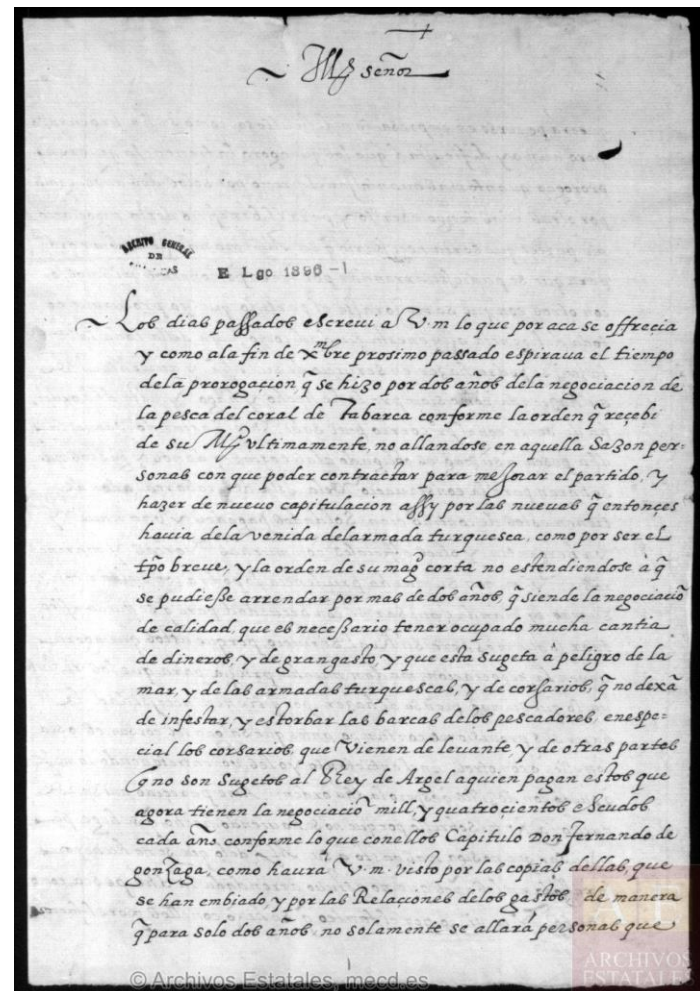 +
Ill.e señor
ARCHIVO GENERAL
DE
E Lgo 1896-1
Los dias passados escrevi a V.m lo que por aca se offreçia
y como ala fin de xmbre prosimo passado espirava el tiempo
dela prorogacion q̃ se hizo por dos años dela negociacion de
la pesca del coral de Tabarca conforme la orden q̃ reçebi
de su Mg.d ultimamente, no allandose, en aquella sazon per-
sonas con que poder contractar para mejorar el partido, y
hazer de nuevo capitulacion assy por las nuevas q̃ entonçes
havia dela venida delarmada turquesca, como por ser el
tp̃o breve, y la orden de su mag.d corta no estendiendose à q̃
se pudiesse arrendar por mas de dos años, q̃ siende la negociaciõ
de calidad, que es necessario tener ocupado mucha cantia
de dineros, y de gran gasto, y que esta sugeta à peligro de la
mar, y de las armadas turquescas, y de corsarios, q̃ no dexã
de infestar, y estorbar las barcas delos pescadores, en espe-
cial los corsarios que vienen de levante y de otras partes
q no son sugetos al Rey de Argel aquien pagan estos que
agora tienen la negociaciõ mill, y quatroçientos escudos
cada año conforme lo que conellos Capitulo Don fernando de
gonzaga, como haurà V.m. visto por las copias dellas, que
se han embiado y por las Relaçiones delos gastos, de manera
q̃ para solo dos años no solamente se allarà personas que
© Archivos Estatales, mecd.es
AE
ARCHIVOS
ESTATALES